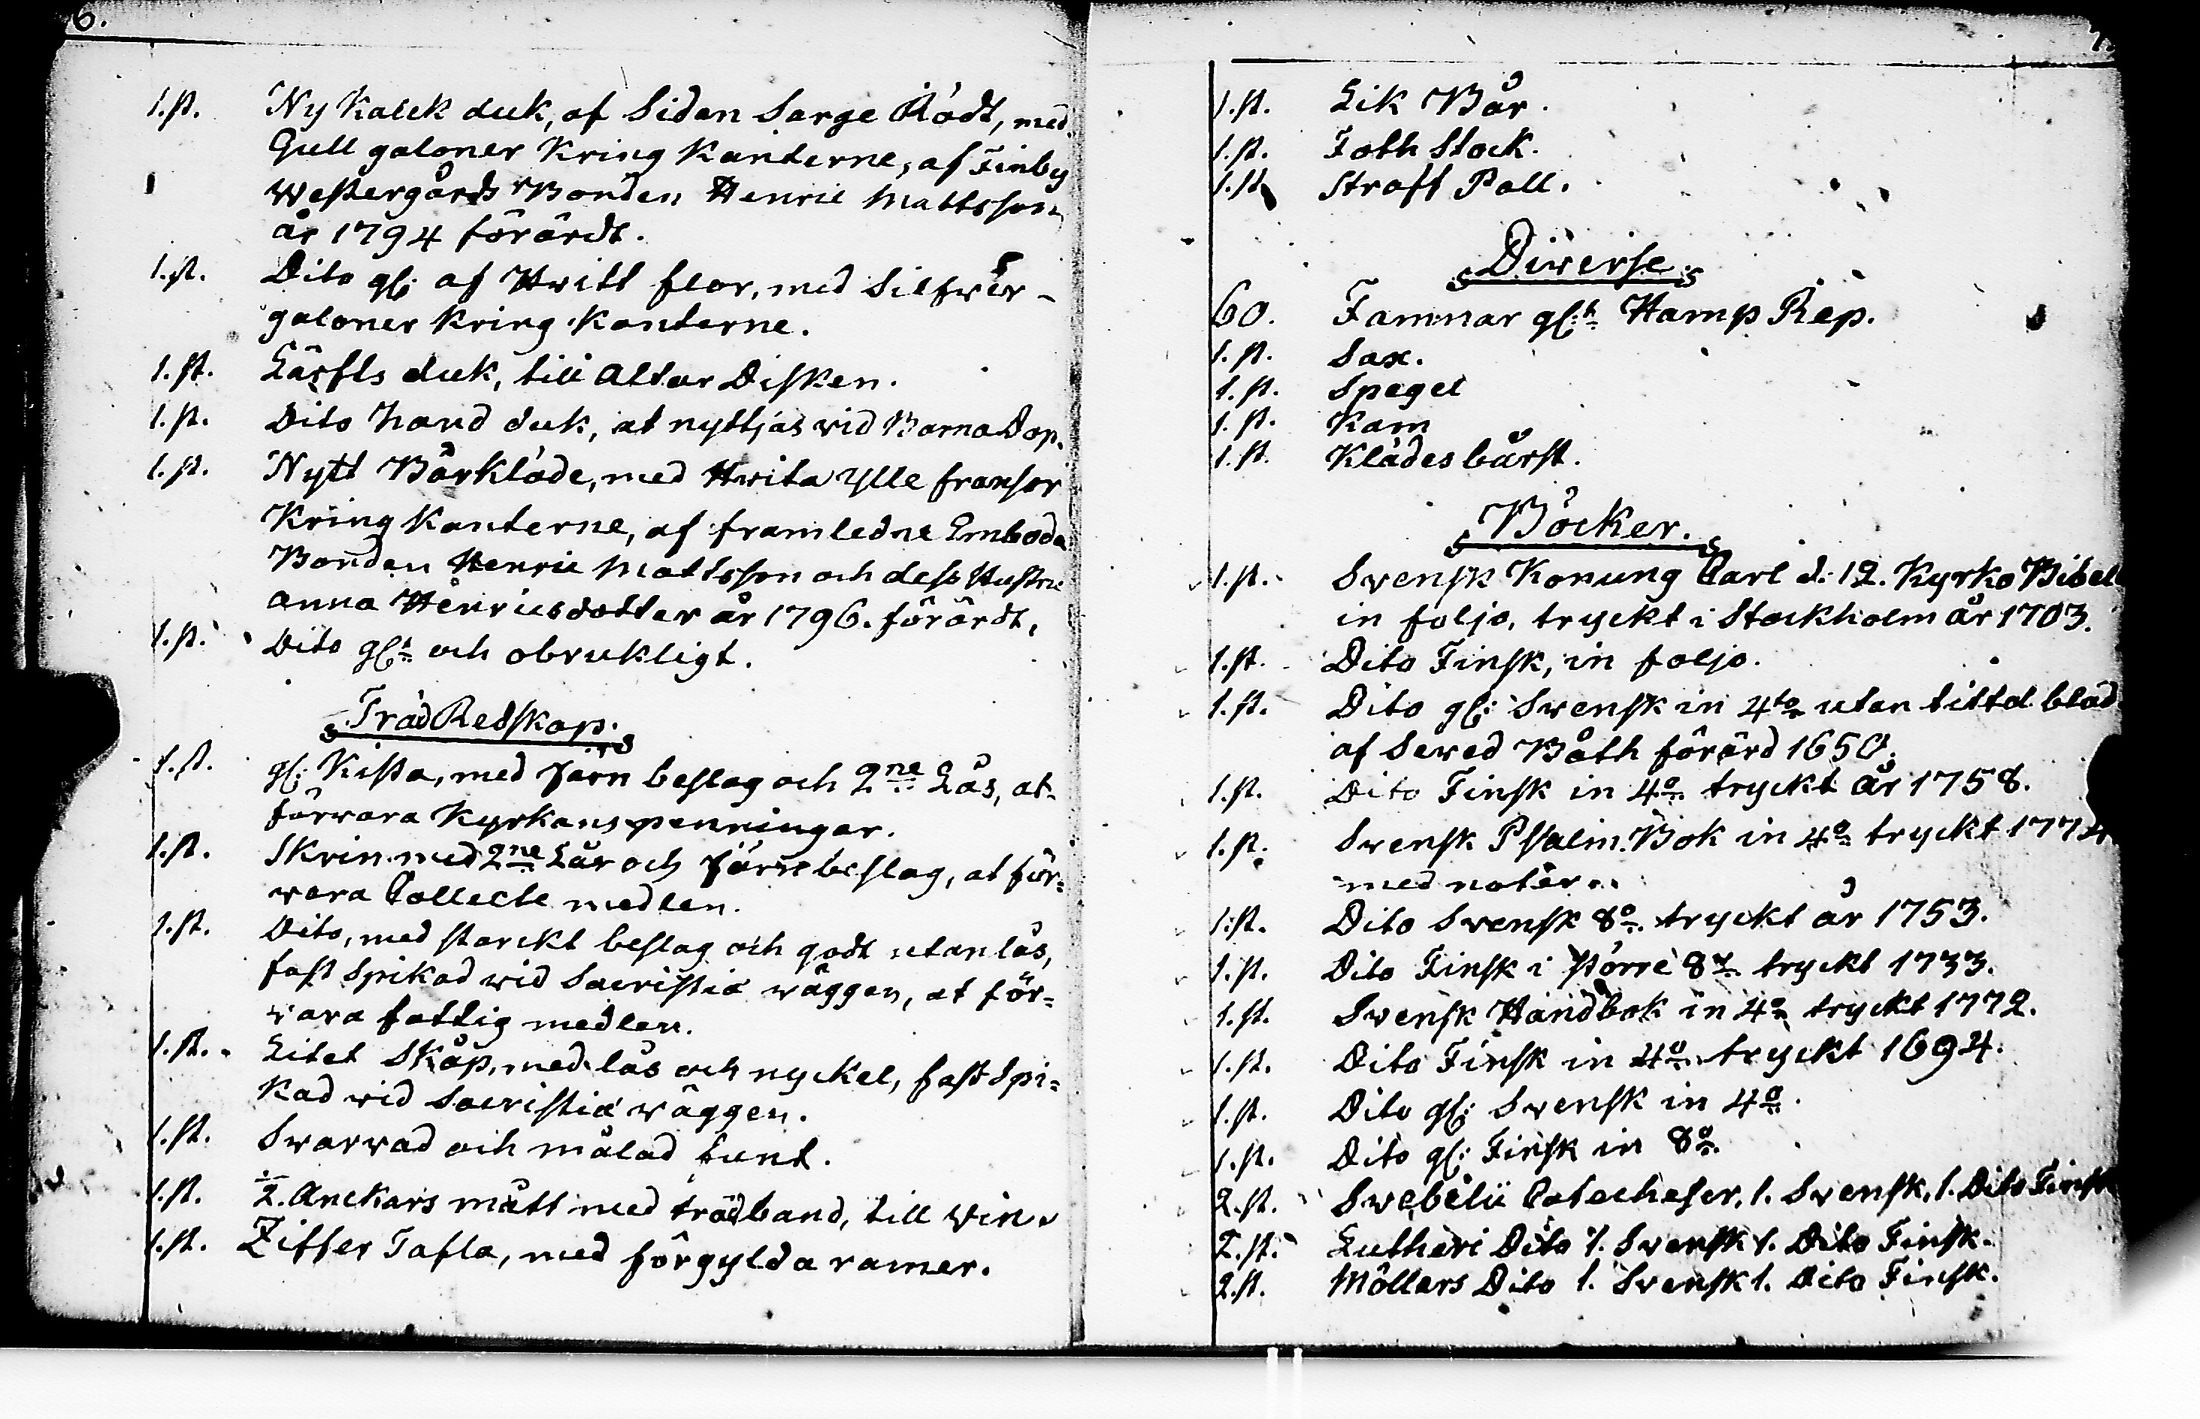 6.
1. st. Ny Kalck duk, af Sidan Sarge Rödt, med
Gull galoner Kring Kanterne, af Finby
Westergårds Bonden Henric Mattsson
år 1794 förärdt.
1. st. Dito gl: af Hwitt flor, med Silfwer-
galoner Kring Kanterne.
1. st. Lärfts duk, till Altar Disken.
1. st. Dito hand duk, at nyttjas wid Barna Dop.
1. st. Nytt Bårkläde, med Hwita ylle fransor
Kring Kanterne, af framledne Emboda
Bonden Henric Mattsson och dess Hustru
Anna Henricsdotter år 1796. förärdt.
1. st. Dito glt och obrukligt.
Träd Redskap.
1. st. gl: Kista, med Järn beslag och 2ne Lås, at
förwara Kyrkans penningar.
1. st. Skrin med 2ne Lås och Järn beslag, at för=
wara Collecte medlen.
1. st. Dito, med starckt beslag och godt utan lås,
fast Spikad wid Sacristiæ wäggen, at för=
wara fattig medlen.
1. st. Litet Skåp, med lås och nyckel, fast Spi=
Kad wid Sacristiæ wäggen.
1. st. Swarwad och målad funt.
1. st. 1/2 Anckars mått med trädband, till Win.
1. st. Ziffer Tafla, med förgylda ramer.
7.
1. st. Lik Bår.
1. st. Foth Stock.
1. st. Straff Pall.
Diwerse.
60. Famnar glt Hamp Rep.
1. st. Sax.
1. st. Spegel
1. st. Kam
1. st. Klädesbårst.
Böcker.
1. st. Swensk Konung Carl d. 12. Kyrko Bibel
in foljo, tryckt i Stockholm år 1703.
1. st. Dito Finsk, in foljo.
1. st. Dito gl: Swensk in 4to utan tittel blad
af Sewed Båth förärd 1650.
1. st. Dito Finsk in 4o tryckt år 1758.
1. st. Swensk Psalm Bok in 4o tryckt 1774
med noter.
1. st. Dito Swensk 8o tryckt år 1753.
1. st. Dito Finsk i störrè 8o tryckt 1733.
1. st. Swensk Handbok in 4o tryckt 1772.
1. st. Dito Finsk in 4o tryckt 1694.
1. st. Dito gl: Swensk in 4o.
1. st. Dito gl: Finsk in 8o.
2. st. Swebilii Catecheser, 1. Swensk, 1. Dito Finsk
2. st. Lutheri Dito 1. Swensk 1. Dito Finsk.
2. st. Möllers Dito 1. Swensk 1. Dito Finsk.